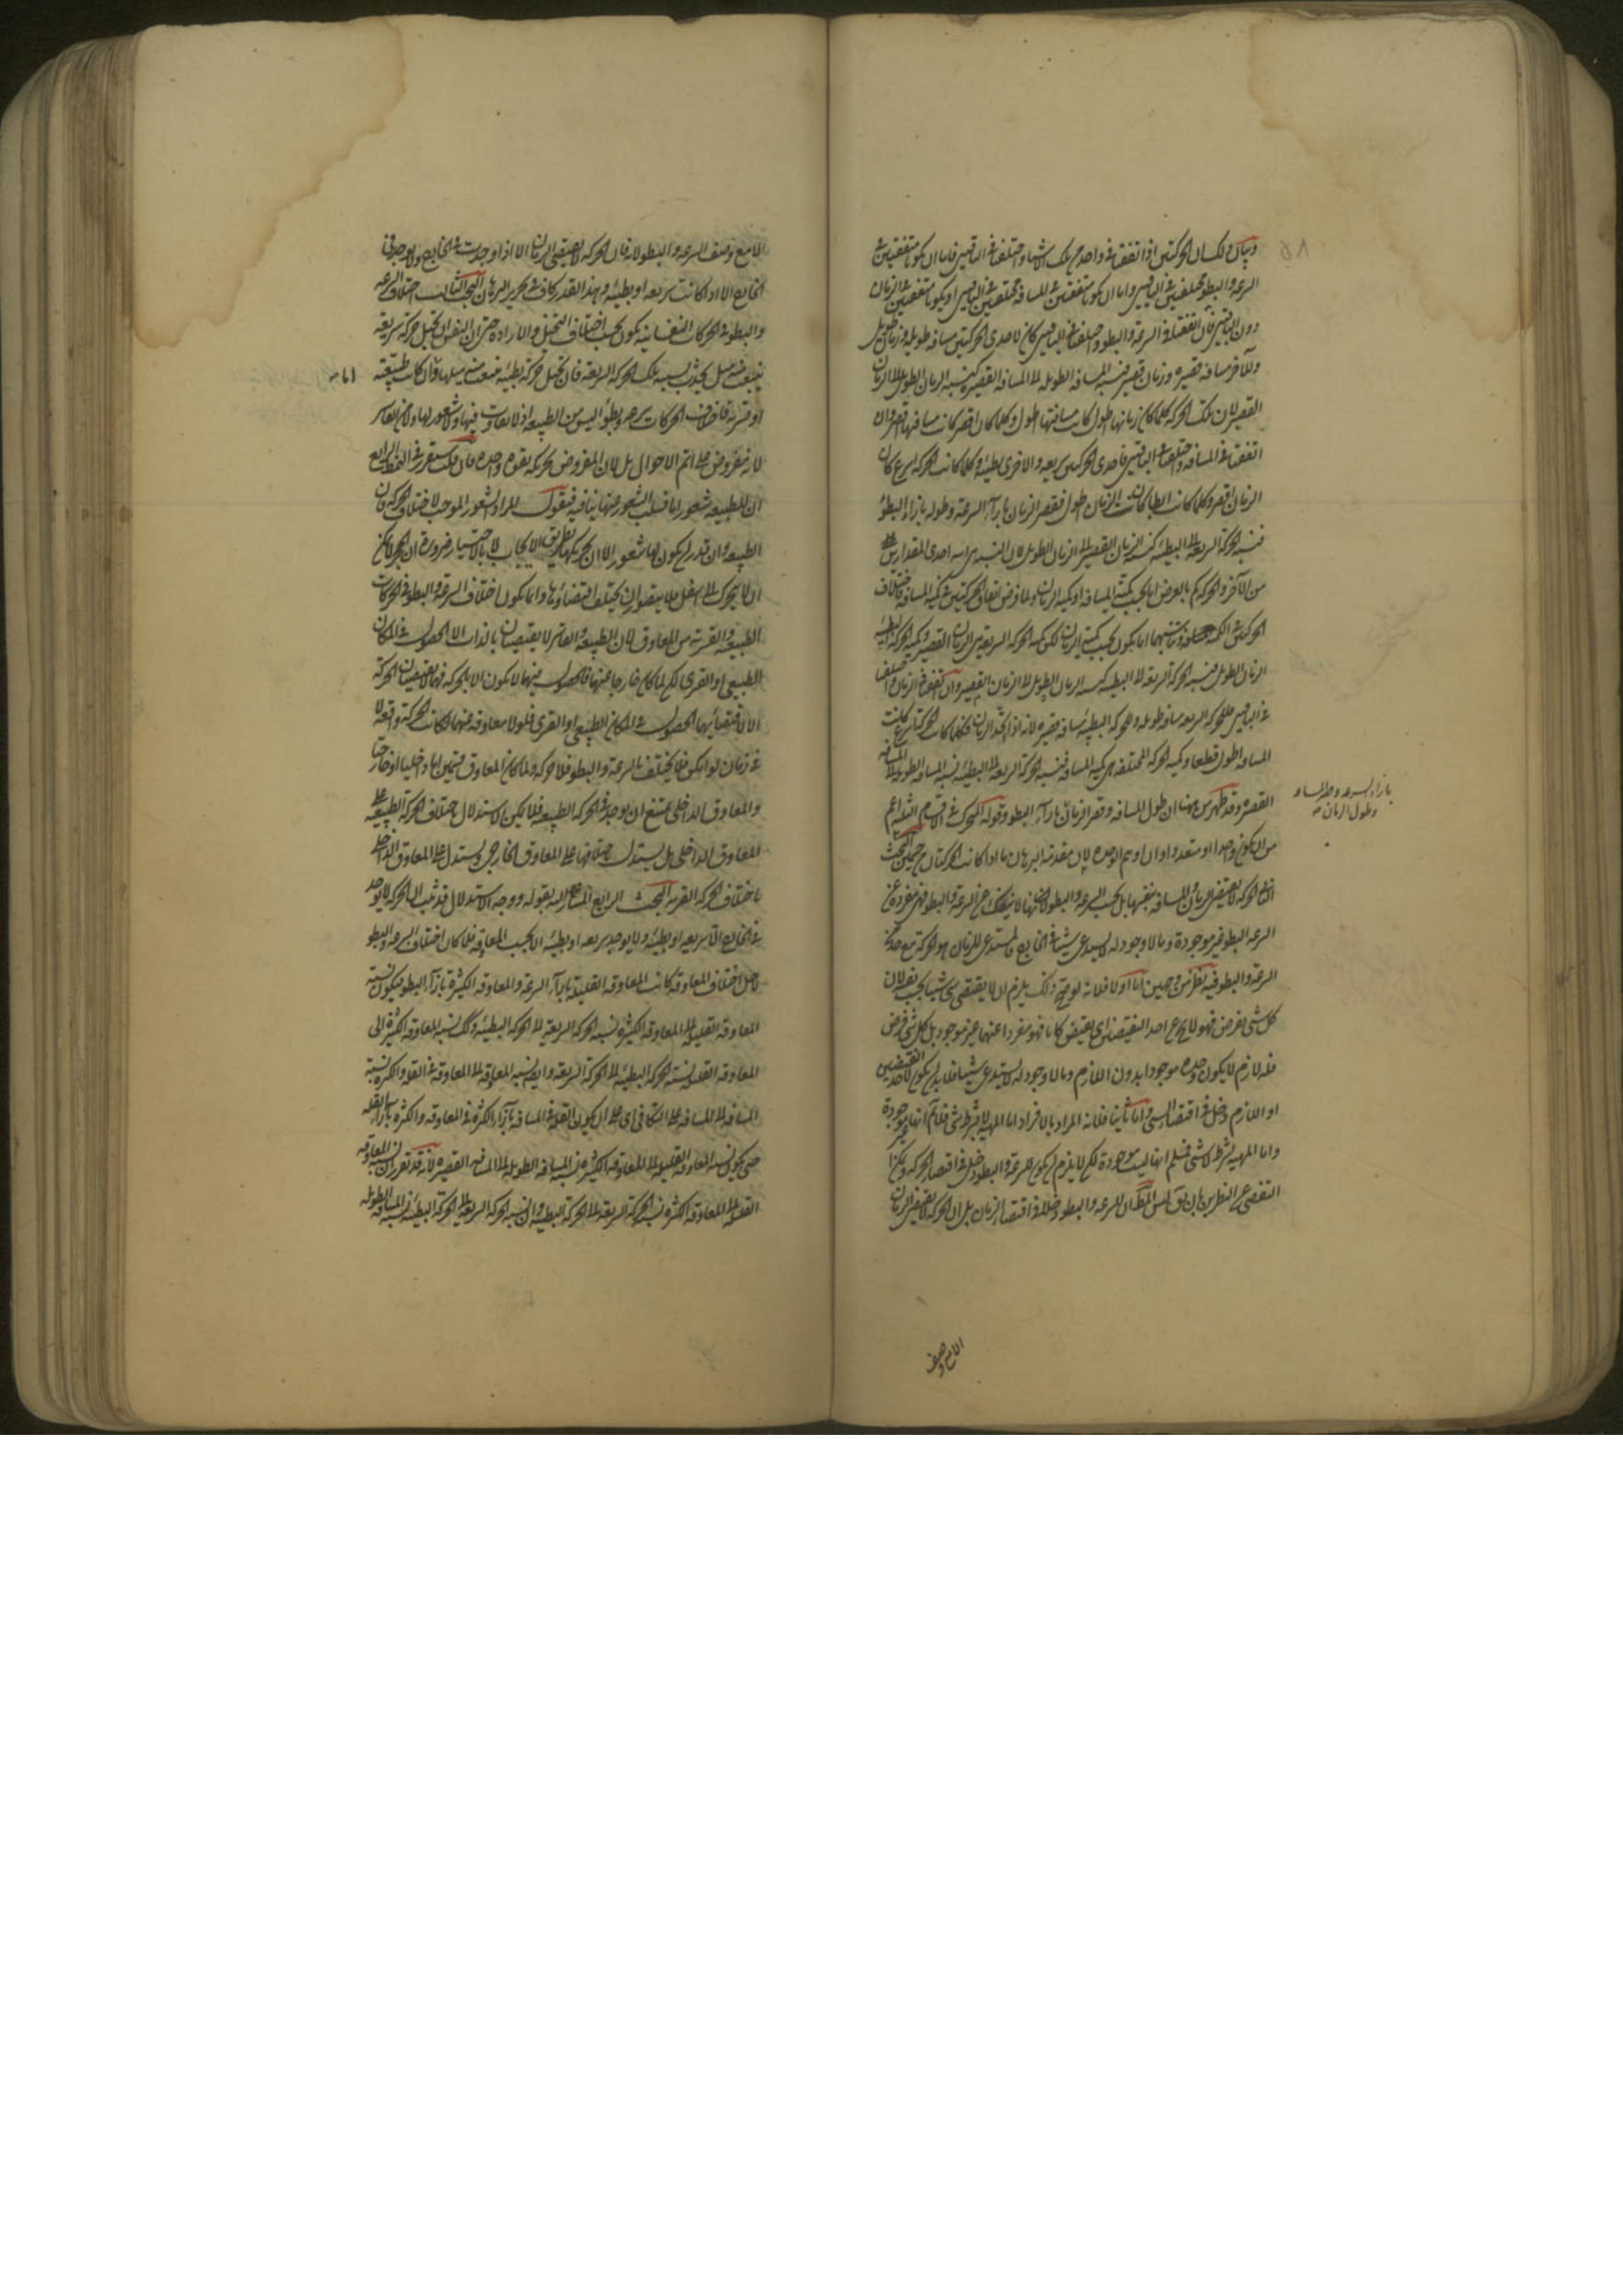 وبيان ذلك ان الحركتين اذا اتفقتا في واحد من تلك الاشياء واختلفتا في الباقيين فاما ان يكونا متفقتين في
السرعة والبطو مختلفتين في الباقيين واما ان يكونا متفقتين في المسافة مختلفتين في الباقيين او يكونا متفقتين في الزمان
دون الباقيين فان اتفقتا في السرعة والبطو واختلفتا في الباقيين كان لاحدى الحركتين مسافة طويلة وزمان طويل
وللآخر مسافة قصيرة وزمان قصير فنسبة المسافة الطويلة الى المسافة القصيرة كنسبة الزمان الطويل الى الزمان
القصير لان تلك الحركة كلما كان زمانها اطول كانت مسافتها اطول وكلما كان اقصر كانت مسافتها اقصر وان
اتفقتا في المسافة واختلفتا في الباقيين فاحدى الحركتين سريعة والاخرى بطيئة وكلما كانت الحركة اسرع كان
الزمان اقصر وكلما كانت ابطا كان الزمان اطول فقصر الزمان بازآء السرعة وطوله بازاء البطؤ
فنسبة الحركة السريعة الى البطيئة كنسبة الزمان القصير الى الزمان الطويل لان النسبة هي احدى المقدارين
من الآخر والحركة كم بالعرض اما بحسب كمية المسافة او كمية الزمان ولما فرض اتفاق الحركتين في كمية المسافة فاختلاف
الحركتين في الكمية انما يكون بحسب كمية الزمان لكن كمية الحركة السريعة هي الزمان القصير وكمية الحركة البطيئة
الزمان الطويل فنسبة الحركة السريعة الى البطيئة كنسبة الزمان الطويل الى الزمان القصير وان اتفقتا في الزمان واختلفتا
في الباقيين فللحركة السريعة مسافة طويلة وللحركة البطيئة مسافة قصيرة لانه اذا اتحد الزمان فكلما كانت الحركة اسرع كانت
المسافة اطول قطعا وكمية الحركة المختلفة هي كمية المسافة فنسبة الحركة السريعة الى البطيئة نسبة المسافة الطويلة الى المسافة
القصيرة وقد ظهر من ههنا ان طول المسافة وقصر الزمان بازآء البطو وقوله المتحرك في الاقسام الثلثة اعم
بازاء السرعة وقصر المسافة
وطول الزمان صح
من ان يكون واحدا او متعددا
الثاني الحركة لا تقتضي الزمان والمسافة بنفسها بل بحسب السرعة والبطو لانها لا تنفك عن السرعة والبطو فهي مفردة عن
السرعة والبطو غير موجودة وما لا وجود له لا يستدعي شيئا في الخارج فالمستدعي للزمان هو الحركة مع حد من
السرعة والبطو فيه نظر من وجهين اما اولا فلانه لو صح ذلك يلزم ان لا يقتضي شيء شيئا بحسب نفسه لان
كل شي يفرض فهو لا يخ عن احد النقيضين اي نقيضين كانا فهو مفردا عنهما غير موجود بل كل شي فرض
فله لازم لا يكون وحده موجودا بدون اللازم وما لا وجود له لا يستدعي شيئا فلا بد ان يكون لاحد النقيضين
او اللازم دخل في اقتضاء الشي واما ثانيا فلانه المراد بالافراد اما المهية لا بشرط شي فلانم انها غير موجودة
واما المهية بشرط لا شي فنسلم انها ليست موجودة لكن لا يلزم ان يكون للسرعة والبطو دخل في اقتضاء الحركة ويمكن
التفصي عن النظرين بان يق ليس المط ان للسرعة والبطو دخلا في اقتضاء الزمان بل ان الحركة لا تقتضي الزمان
الا مع وصف
الا مع وصف السرعة والبطو لانه قال الحركة لا تقتضي الزمان الا اذا وجدت في الخارج ولا توجد في
الخارج الا اذا كانت سريعة او بطيئة وهذا القدر كاف في تحرير البرهان البحث الثالث اختلاف السرعة
والبطو في الحركات النفسانية يكون بحسب اختلاف التخيل والارادة حتى ان النفس ان تخيل حركة سريعة
ينبعث منه ميل يحدث بسببه تلك الحركة السريعة فان تخيل حركة بطيئة فينبعث منه ميلها وان كانت طبيعية
اما صح
او قسرية فاختلاف الحركات سرعة وبطؤا ليس من الطبيعة اذ لا تفاوت فيها ولا شعور لها ولا من القاسر
لانه مفروض على اتم الاحوال بل لان المفروض تحركه بقوة واحدة فان قلت سيقرر في النمط الرابع
ان للطبيعة شعورا ما فسلب الشعور عنها ينافيه فنقول المراد الشعور الموجب لاختلاف الحركة فان
الطبيعة وان قدر ان يكون لها شعور الا ان تحريكها بطريق الايجاب لا بالاختيار ضرورة ان الحجر لا يمكن
ان لا يتحرك الى اسفل فلا يتصور ان يختلف اقتضاؤها وانما يكون اختلاف السرعة والبطو في الحركات
الطبيعية والقسرية من المعاوق لان الطبيعة والقاسر لا يقتضيان بالذات الا الحصول في المكان
الطبيعي او القسري لكن لما كان خارجا عنهما فالحصول فيهما لا يكون الا بالحركة فهما لا يقتضيان الحركة
الا لاقتضائهما الحصول في المكان الطبيعي او القسري فلولا معاوقة عنهما لكانت الحركة واقعة لا
في زمان لو امكن فلا يختلف بالسرعة والبطو فلا حركة ولما كان المعاوق قسمين اما داخليا او خارجيا
والمعاوق الداخلي يمتنع ان يوجد في الحركة الطبيعية فلا يمكن الاستدلال باختلاف الحركة الطبيعية على
المعاوق الداخلي بل يستدل باختلافها على المعاوق الخارجي ويستدل على المعاوق الداخلي
باختلاف الحركة القسرية البحث الرابع المشار اليه بقوله ووجه الاستدلال قد ثبت ان الحركة لا توجد
في الخارج الا سريعة او بطيئة ولا يوجد سريعة او بطيئة الا بحسب المعاوقة فلما كان اختلاف السرعة والبطو
لاجل اختلاف المعاوقة كانت المعاوقة القليلة بازآء السرعة والمعاوقة الكثيرة بازآء البطو فيكون نسبة
المعاوقة القليلة الى المعاوقة الكثيرة نسبة الحركة السريعة الى الحركة البطيئة وكك نسبة المعاوقة الكثيرة الى
المعاوقة القليلة نسبة الحركة البطيئة الى الحركة السريعة وايضا نسبة المعاوقة الى المعاوقة في القلة والكثرة نسبة
المسافة الى المسافة على التكافي اي على ان يكون القلة في المسافة بازآء الكثرة في المعاوقة والكثرة بازاء القلة
حتى يكون نسبة المعاوقة القليلة الى المعاوقة الكثيرة نسبة المسافة الطويلة الى المسافة القصيرة لانه قد تقرر ان نسبة المعاوقة
القليلة الى المعاوقة الكثيرة نسبة الحركة السريعة الى الحركة البطيئة وان نسبة الحركة السريعة الى الحركة البطيئة نسبة المسافة الطويلة